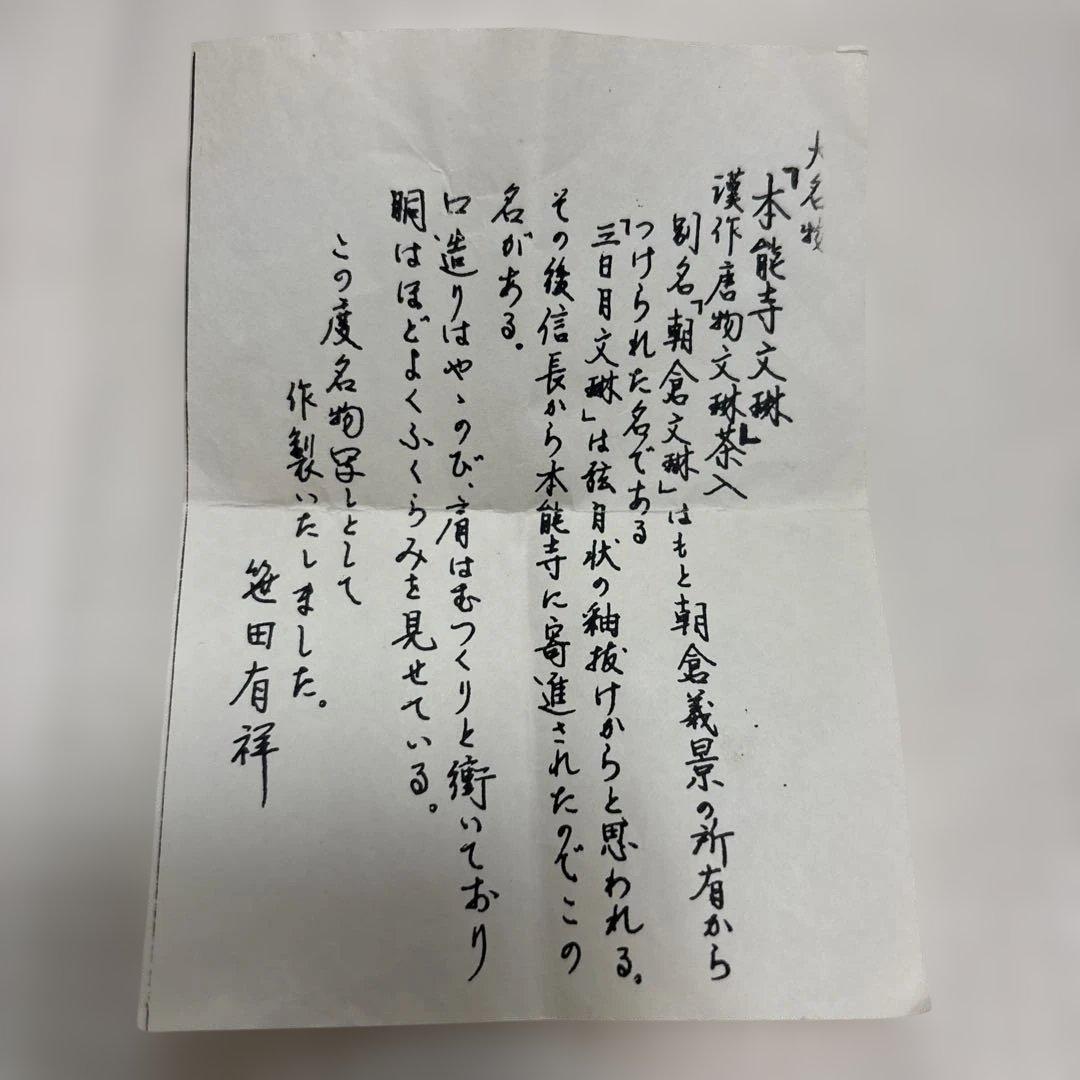 大名物
「本能寺文琳」
漢作唐物文琳茶入
別名「朝倉文琳」はもと朝倉義景の所有から
つけられた名である
「三日月文琳」は弦月状の釉抜けからと思われる。
その後信長から本能寺に寄進されたのでこの
名がある。
口造りはやゝのび、肩はむつくりと衝いており
胴はほどよくふくらみを見せている。
この度名物写しとして
作製いたしました。
笹田有祥